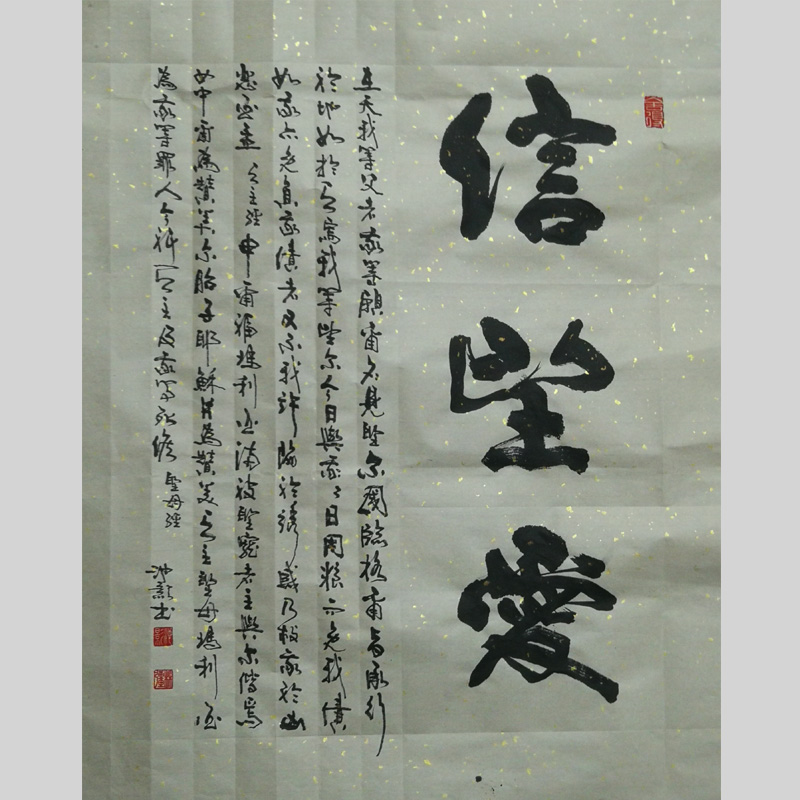 信望愛
在天我等父者我等願爾名見聖爾國臨格爾旨承行
於地如於天焉我等望爾今日與我々日用糧而免我債
如我亦免負我債者又不我許陷於誘惑乃救我於凶
惡亞孟 天主經 申爾福瑪利亞滿被聖寵者主與爾偕焉
女中爾為讚美爾胎子耶穌并為讚美天主聖母瑪利亞
為我等罪人今祈天主及我等死候 聖母經
書